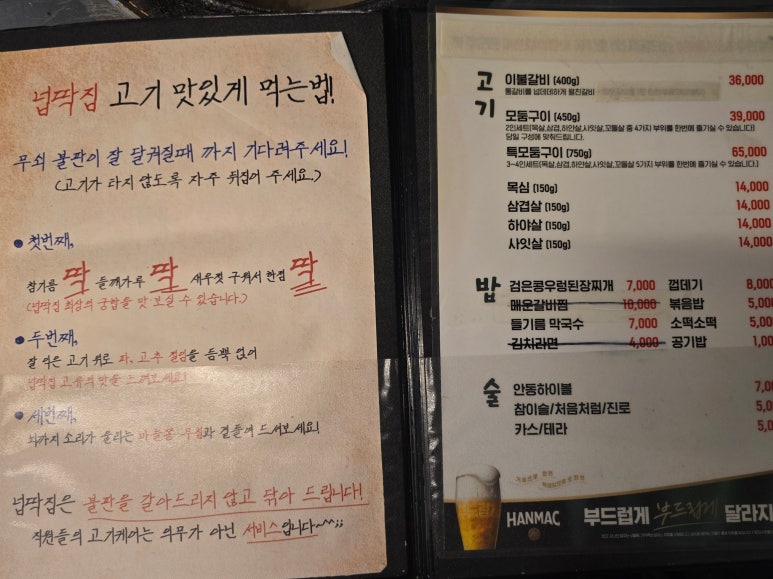 넙딱집 고기 맛있게 먹는법!
무쇠 불판이 잘 달궈질때 까지 기다려주세요!
(고기가 타지 않도록 자주 뒤집어 주세요.)
• 첫번째,
참기름 딱 들깨가루 딱 새우젓 구워서 한점 딱
(넙딱집 최상의 궁합을 맛 보실 수 있습니다.)
• 두번째,
잘 익은 고기 위로 파, 고추 절임을 듬뿍 얹어
넙딱집 고유의 맛을 느껴보세요!
• 세번째,
뇌까지 소리가 울리는 마늘쫑 무침과 곁들여 드셔보세요!
넙딱집은 불판을 갈아드리지 않고 닦아 드립니다!
직원들의 고기케어는 의무가 아닌 서비스입니다~^^;;
고기
이불갈비 (400g) 36,000
통갈비를 넙데데하게 펼친갈비
모둠구이 (450g) 39,000
2인세트(목살,삼겹,하얀살,사잇살,꼬들살 중 4가지 부위를 한번에 즐기실 수 있습니다)
당일 구성에 맞춰드립니다.
특모둠구이 (750g) 65,000
3~4인세트(목살,삼겹,하얀살,사잇살,꼬들살 5가지 부위를 한번에 즐기실 수 있습니다)
목심 (150g) 14,000
삼겹살 (150g) 14,000
하야살 (150g) 14,000
사잇살 (150g) 14,000
밥
검은콩우렁된장찌개 7,000 껍데기 8,000
매운갈비찜 10,000 볶음밥 5,000
들기름 막국수 7,000 소떡소떡 5,00
김치라면 4,000 공기밥 1,00
술
안동하이볼 7,0
참이슬/처음처럼/진로 5,0
카스/테라 5,0
HANMAC 부드럽게 부드럽게 달라지